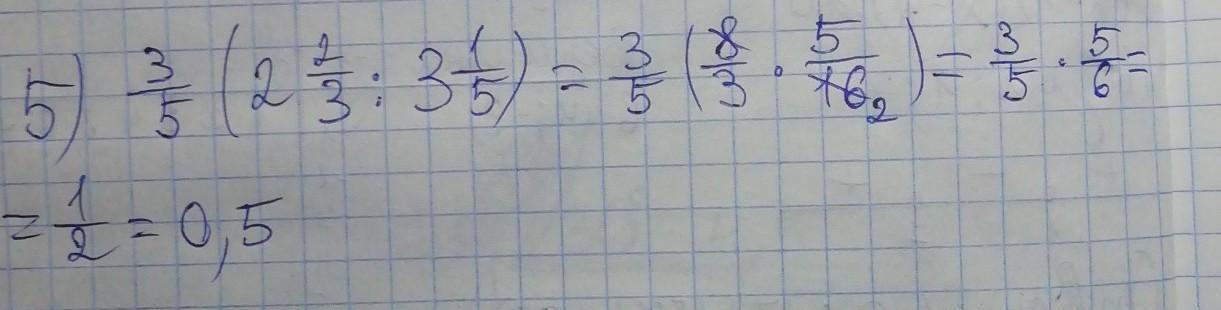 5) 3/5 (2 2/3 : 3 1/5) = 3/5 (8/3 · 5/16 2) = 3/5 · 5/6 =
= 1/2 = 0,5